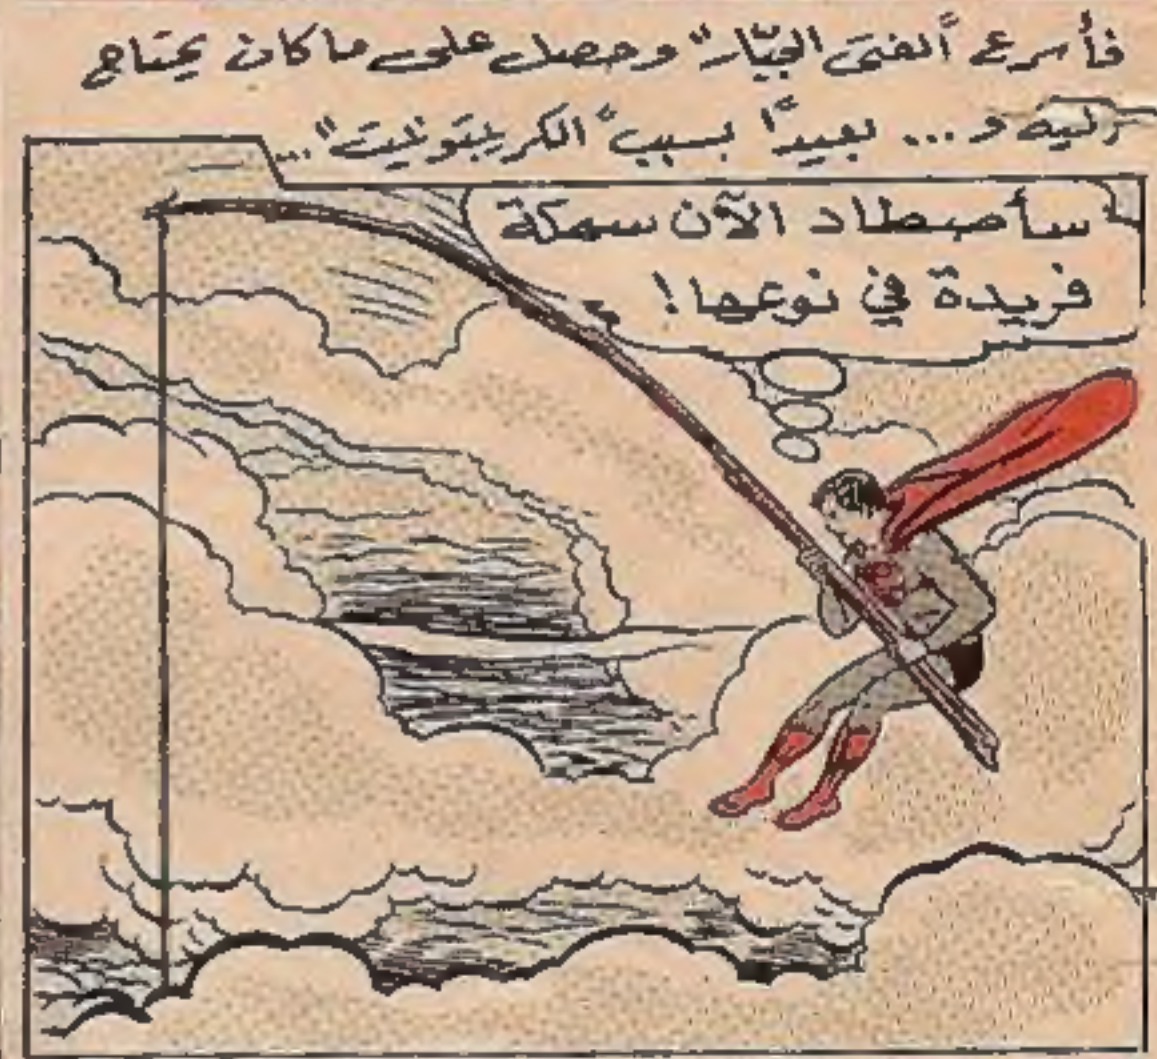 فأسرع "الفتى الجبّار" وحصل على ما كان يحتاج
إليه و... بعيدًا بسبب "الكريبتونيت"...
سأصطاد الآن سمكة
فريدة في نوعها!